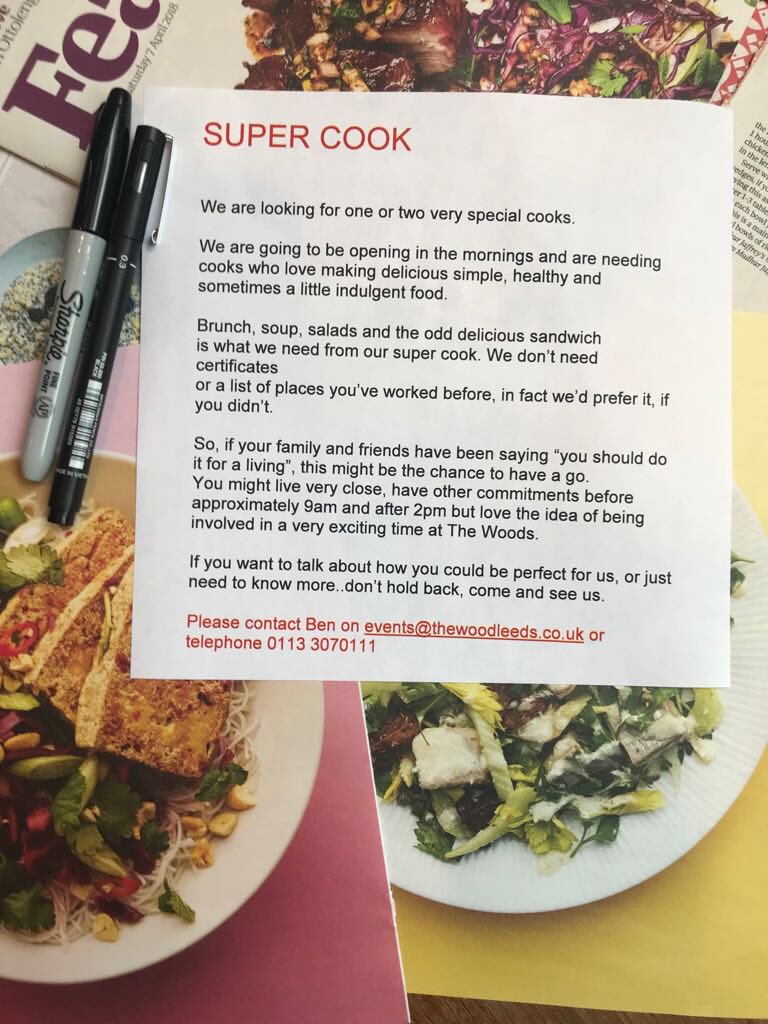 n Ottoleng
Fea
aturday 7 April 2018
SUPER COOK
We are looking for one or two very special cooks.
We are going to be opening in the mornings and are needing
cooks who love making delicious simple, healthy and
sometimes a little indulgent food.
Brunch, soup, salads and the odd delicious sandwich
is what we need from our super cook. We don’t need
certificates
or a list of places you’ve worked before, in fact we’d prefer it, if
you didn’t.
So, if your family and friends have been saying “you should do
it for a living”, this might be the chance to have a go.
You might live very close, have other commitments before
approximately 9am and after 2pm but love the idea of being
involved in a very exciting time at The Woods.
If you want to talk about how you could be perfect for us, or just
need to know more..don’t hold back, come and see us.
Please contact Ben on events@thewoodleeds.co.uk or
telephone 0113 3070111
Sharpie
FINE
POINT
AP
0.3
BLACK
MADE IN
the
1 hou
chicken
in the le
Serve w